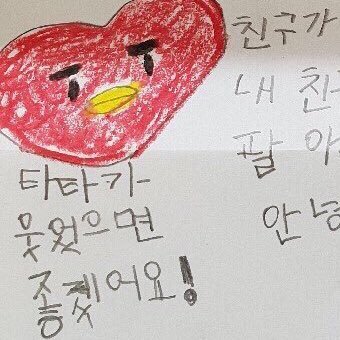 타타가
웃었으면
좋겠어요!
친구가
내 친
팔
안녕